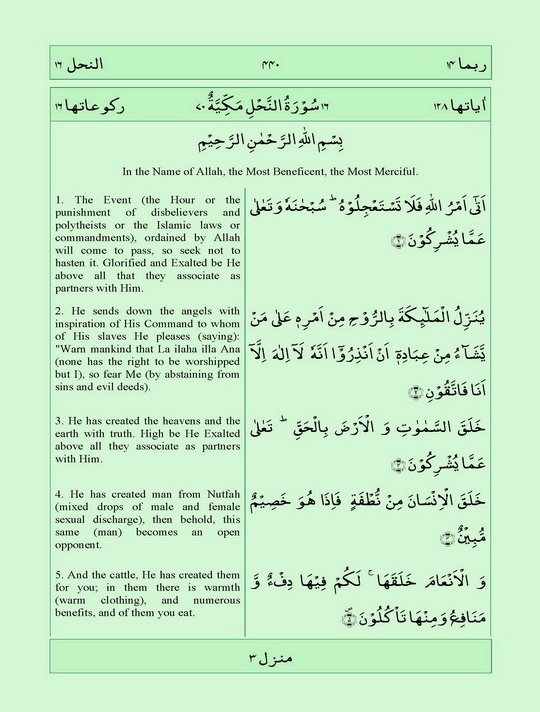 ربما ۱۴ ۴۴۰ النحل ۱۶
اٰیاتها ۱۲۸ ۱۶ سُوْرَةُ النَّحْلِ مَكِّيَّةٌ ۷۰ ركوعاتها ۱۶
بِسْمِ اللّٰهِ الرَّحْمٰنِ الرَّحِيْمِ
In the Name of Allah, the Most Beneficent, the Most Merciful.
1. The Event (the Hour or the
punishment of disbelievers and
polytheists or the Islamic laws or
commandments), ordained by Allah
will come to pass, so seek not to
hasten it. Glorified and Exalted be He
above all that they associate as
partners with Him.
اَتٰۤى اَمْرُ اللّٰهِ فَلَا تَسْتَعْجِلُوْهُ ؕ سُبْحٰنَهٗ وَ تَعٰلٰى
عَمَّا يُشْرِكُوْنَ ﴿۱﴾
2. He sends down the angels with
inspiration of His Command to whom
of His slaves He pleases (saying):
"Warn mankind that La ilaha illa Ana
(none has the right to be worshipped
but I), so fear Me (by abstaining from
sins and evil deeds).
يُنَزِّلُ الْمَلٰٓئِكَةَ بِالرُّوْحِ مِنْ اَمْرِهٖ عَلٰى مَنْ
يَّشَآءُ مِنْ عِبَادِهٖۤ اَنْ اَنْذِرُوْۤا اَنَّهٗ لَاۤ اِلٰهَ اِلَّاۤ
اَنَا فَاتَّقُوْنِ ﴿۲﴾
3. He has created the heavens and the
earth with truth. High be He Exalted
above all they associate as partners
with Him.
خَلَقَ السَّمٰوٰتِ وَ الْاَرْضَ بِالْحَقِّ ؕ تَعٰلٰى
عَمَّا يُشْرِكُوْنَ ﴿۳﴾
4. He has created man from Nutfah
(mixed drops of male and female
sexual discharge), then behold, this
same (man) becomes an open
opponent.
خَلَقَ الْاِنْسَانَ مِنْ نُّطْفَةٍ فَاِذَا هُوَ خَصِيْمٌ
مُّبِيْنٌ ﴿۴﴾
5. And the cattle, He has created them
for you; in them there is warmth
(warm clothing), and numerous
benefits, and of them you eat.
وَ الْاَنْعَامَ خَلَقَهَا ۚ لَكُمْ فِيْهَا دِفْءٌ وَّ
مَنَافِعُ وَ مِنْهَا تَاْكُلُوْنَ ﴿۵﴾
منزل ۳